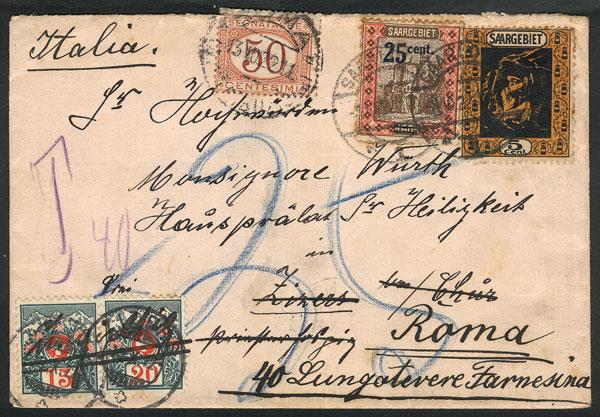 Italia.
SEGNATASSE
50
CENTESIMI
SAARGEBIET
25 cent.
SAARGEBIET
5
cent.
Sr Hochwürden
Monsignore Wurth
Hausprälat Sr Heiligkeit
in
T
40
25
bei
Zizers
Chur
Roma
40 Lungotevere Farnesina
15
20